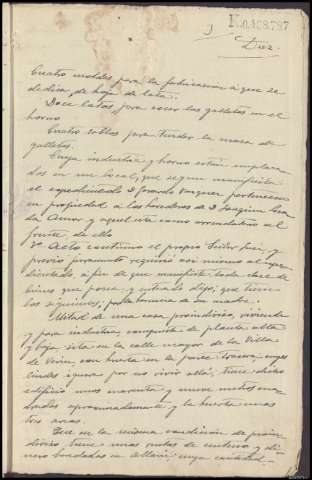 Diez.
Cuatro moldes para la fabricación a que se
dedica, de hoja de lata.
Doce latas para cocer las galletas en el
horno
Cuatro tablas para tender la masa de
galletas.
Cuya industria y horno están emplaza-
dos en un local, que segun manifiesta
el expedientado D. Gerardo Vazquez pertenecen
en propiedad a los herederos de D. Joaquin
y aquel está como arrendatario al
frente de ello
Yo Acto continuo el propio Señor Juez, y
previo juramento requirió asi mismo al expe-
dientado, a fin de que manifieste toda clase de
bienes que posea y enterado dijo; que tiene
los siguientes, por herencia de su madre:
Mitad de una casa proindiviso, vivienda
y para industria, compuesta de planta alta
y baja sita en la calle mayor de la Villa
de Verin con huerta en la parte trasera, cuyos
lindes ignora por no vivir alli, tiene dicho
edificio unos cuarenta y nueve metros cua-
drados aproximadamente y la huerta unas
tres areas.
Que en la misma condición de proin-
diviso tiene unas rentas de centeno y di-
nero en Allariz cuya cantidad